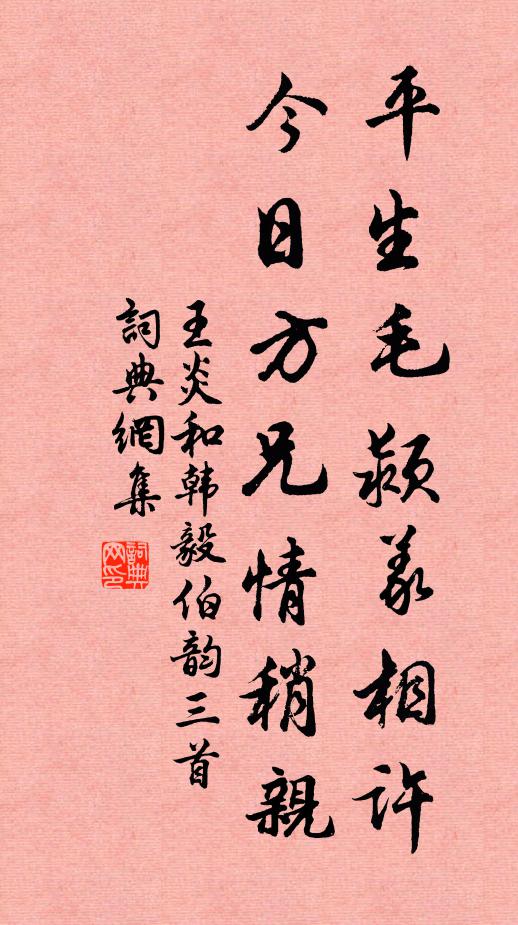 平生毛颖义相许
今日方兄情稍親
王炎和韩毅伯韵三首
詞典網集
詞典网印